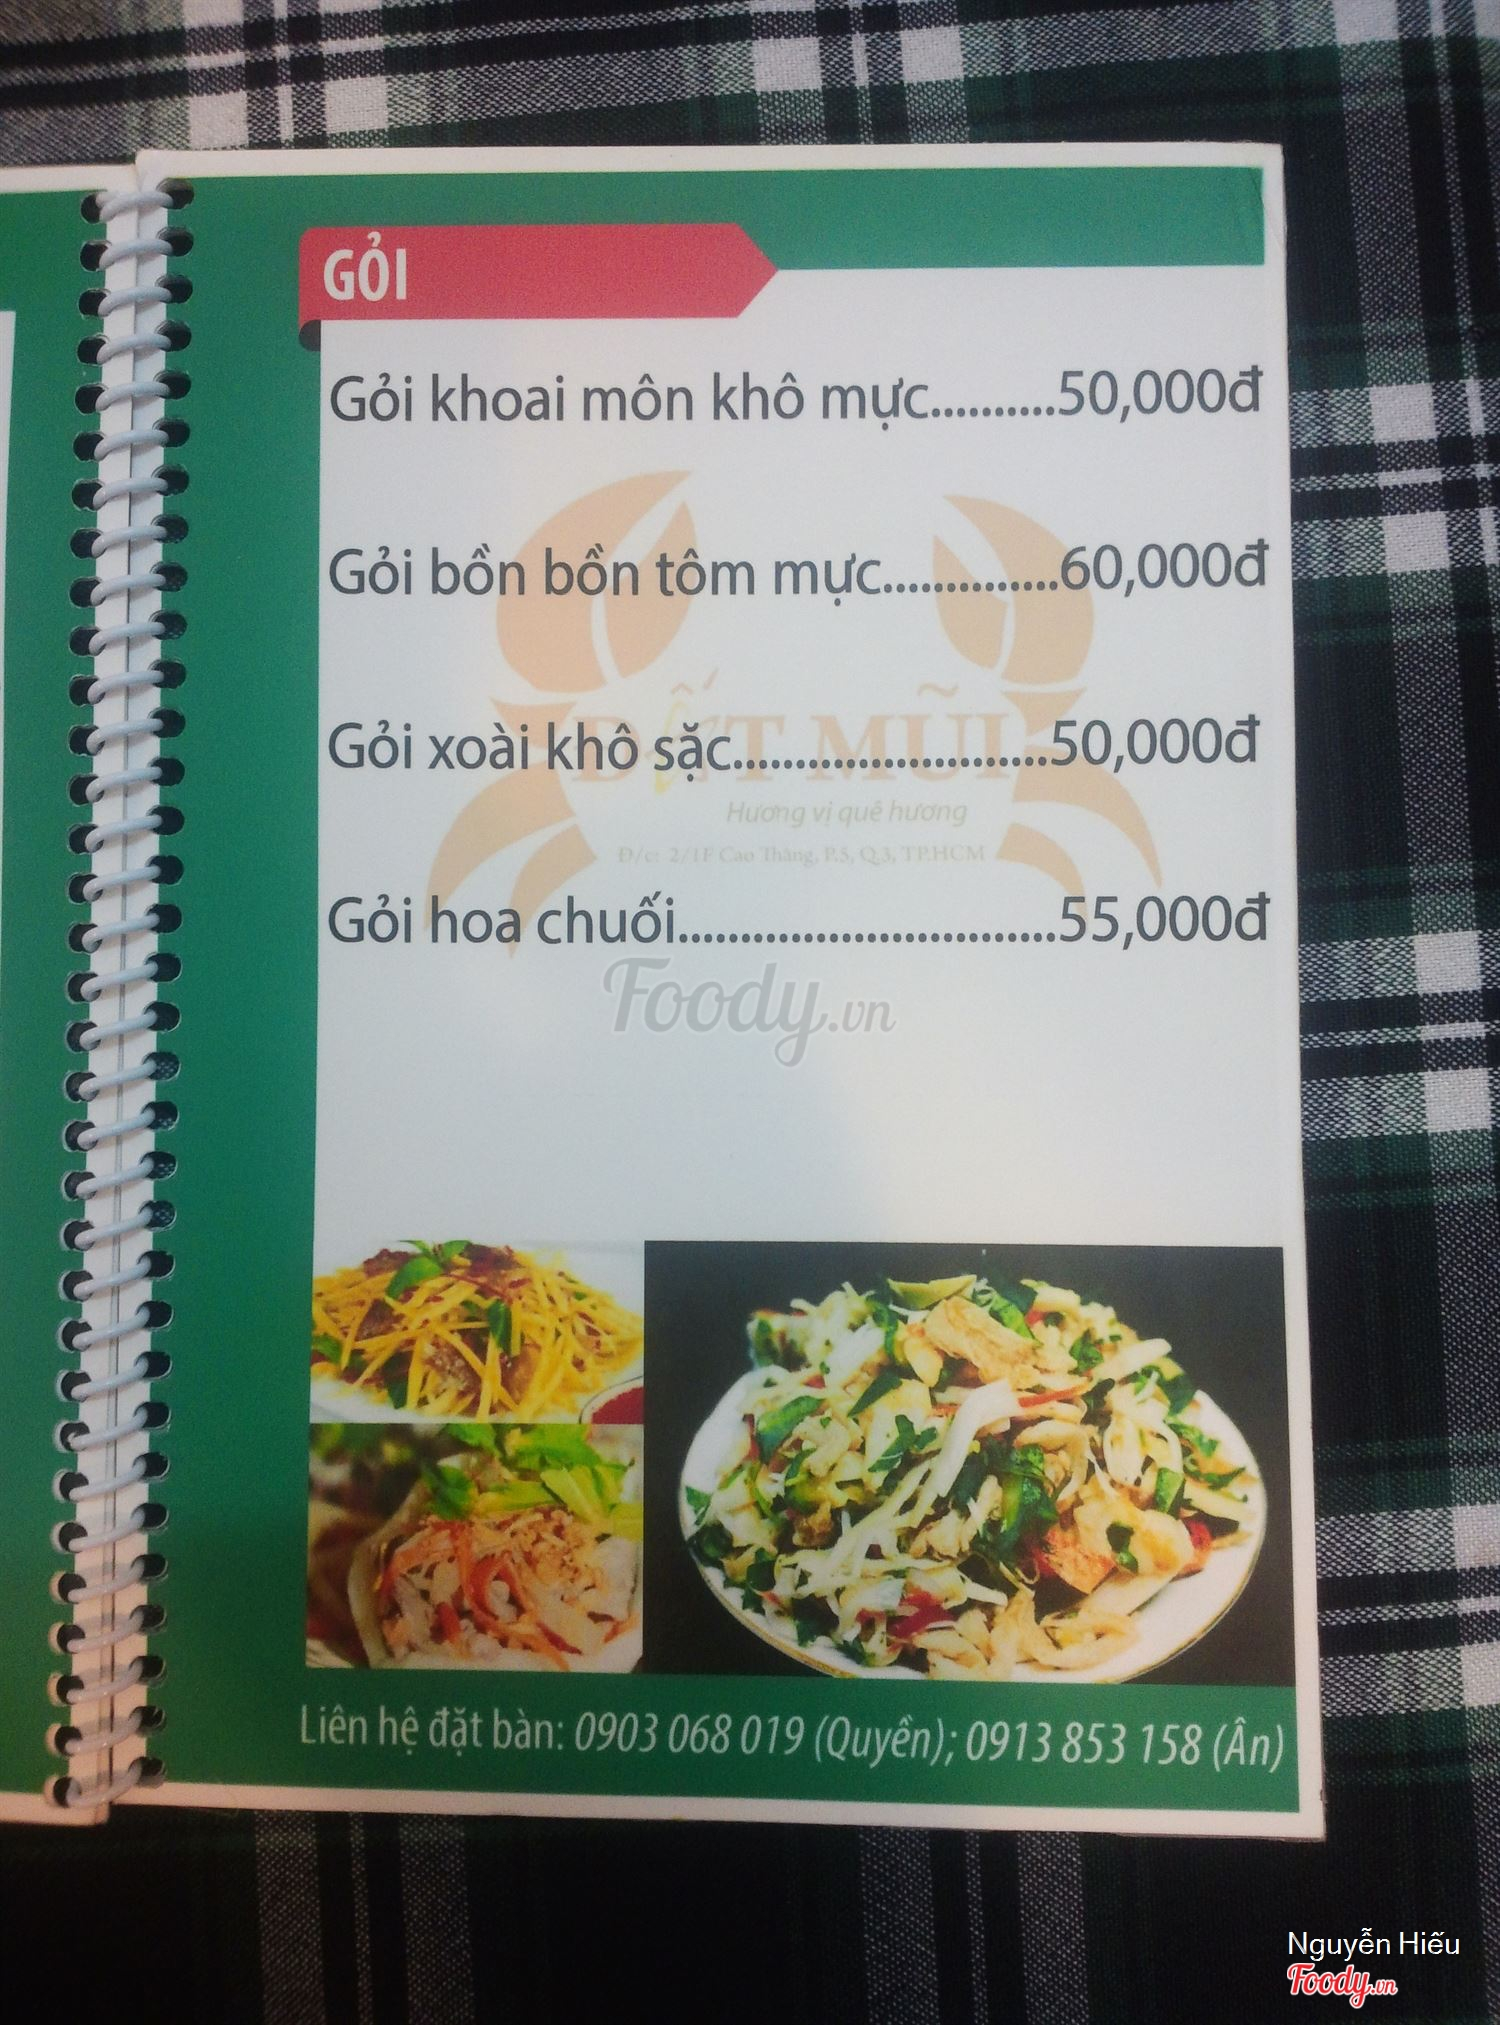 GỎI
Gỏi khoai môn khô mực..........50,000đ
Gỏi bồn bồn tôm mực..............60,000đ
ĐẤT MŨI
Gỏi xoài khô sặc.........................50,000đ
Hương vị quê hương
Đ/c: 2/1F Cao Thắng, P.5, Q.3, TP.HCM
Gỏi hoa chuối..............................55,000đ
Foody.vn
Liên hệ đặt bàn: 0903 068 019 (Quyền); 0913 853 158 (Ân)
Nguyễn Hiếu
Foody.vn